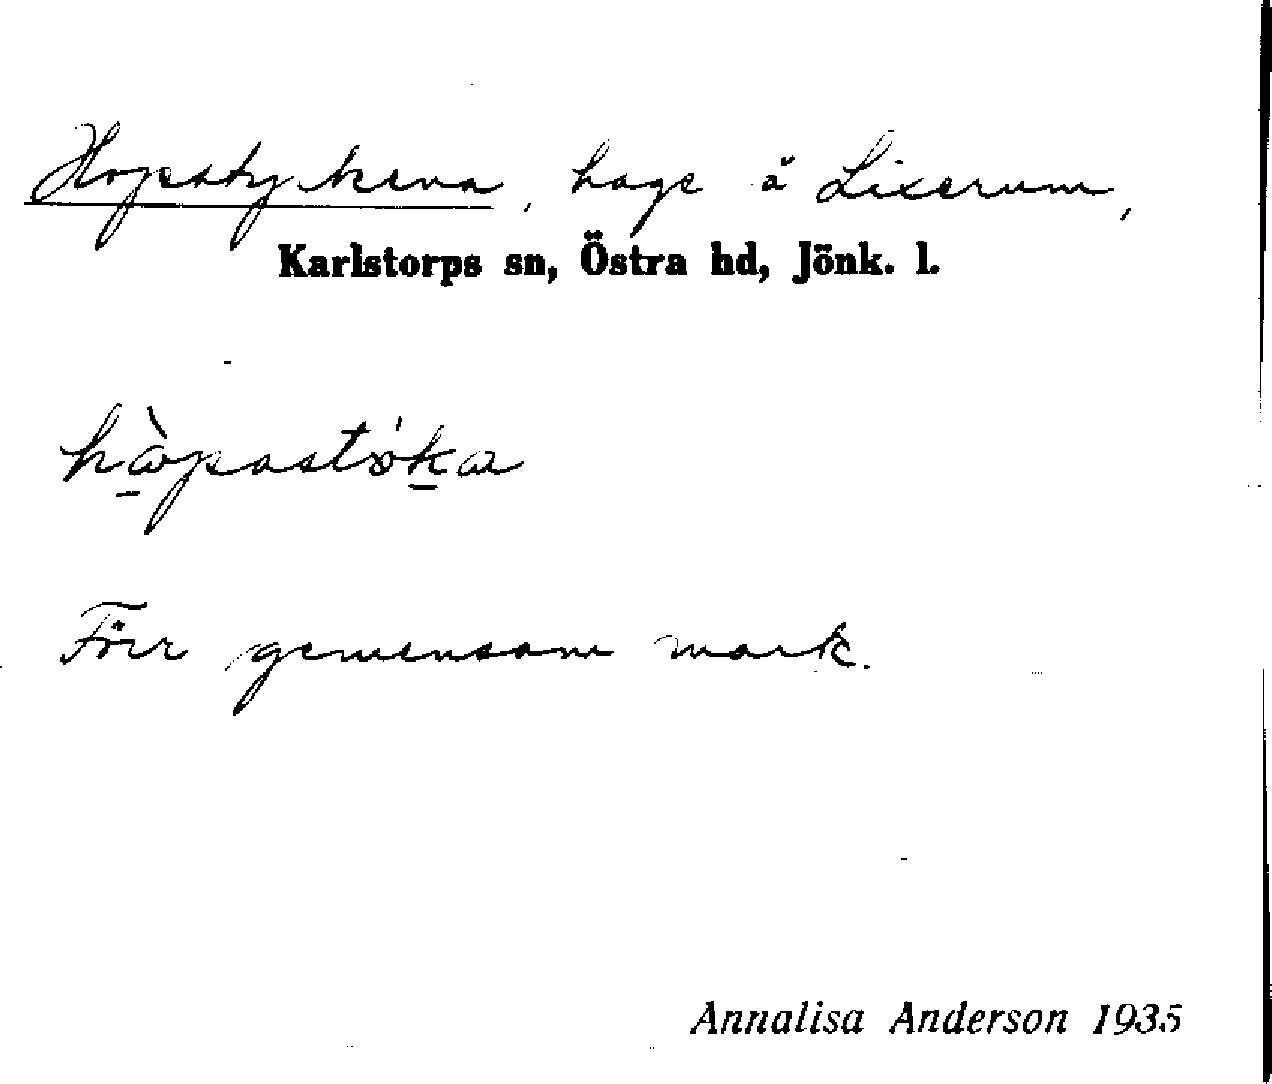 Hopestykena, hage å Lixerum,
Karlstorps sn, Östra hd, Jönk. l.
Förr gemensam mark.
Annalisa Anderson 1935